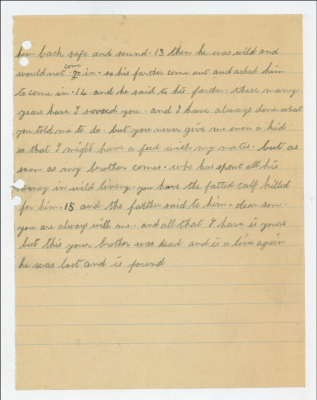 him back safe and sound. 13 then he was wild and
come
would not go in. so his farther come out and asked him
to come in. 14 and he said to his farder. these many
years have I served you. and I have always done what
you told me to do. but you never give me even a kid
so that I might have a fead with my mates. but as
soon as my brother comes. who has spent all his
money in wild living. you have the fatted calf killed
for him. 15 and the farther said to him. dear son
you are always with me. and all that I have is yours
but this your brother was dead and is a live again
he was lost and is found